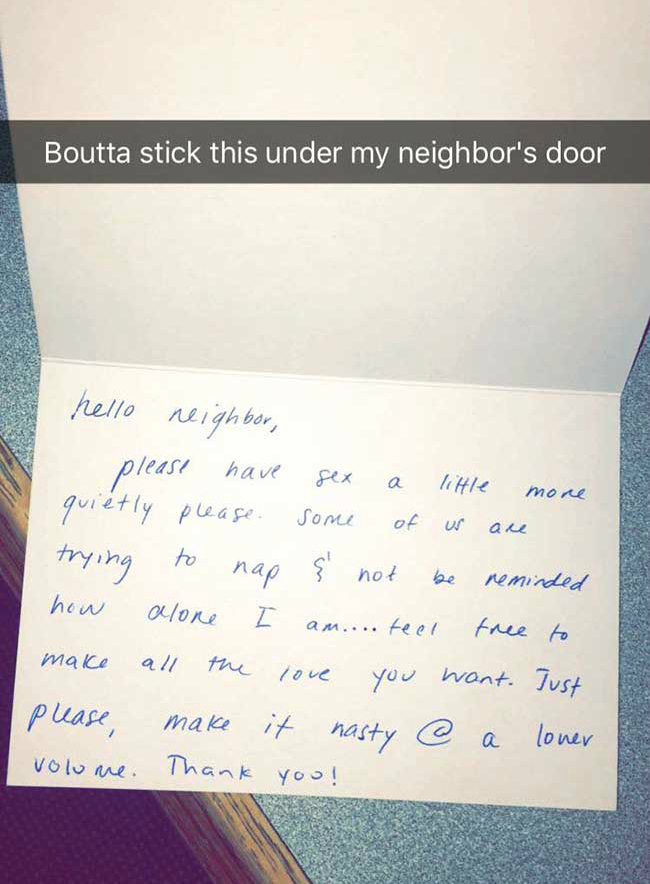 Boutta stick this under my neighbor's door
hello neighbor,
please have sex a little more
quietly please. Some of us are
trying to nap & not be reminded
how alone I am.... feel free to
make all the love you want. Just
please, make it nasty @ a lower
volume. Thank you!